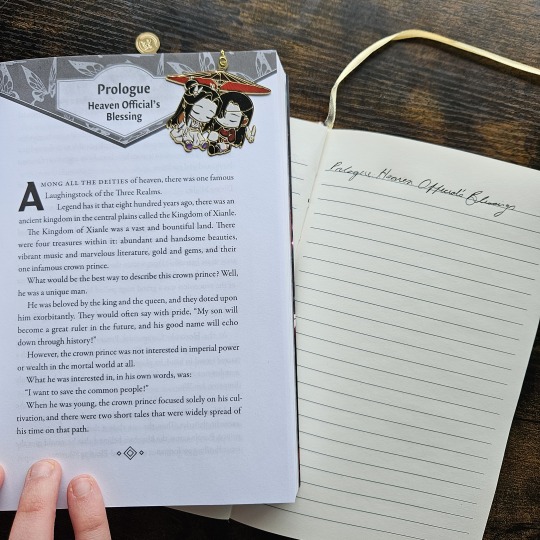 Prologue
Heaven Official's
Blessing
AMONG ALL THE DEITIES of heaven, there was one famous
Laughingstock of the Three Realms.
Legend has it that eight hundred years ago, there was an
ancient kingdom in the central plains called the Kingdom of Xianle.
The Kingdom of Xianle was a vast and bountiful land. There
were four treasures within it: abundant and handsome beauties,
vibrant music and marvelous literature, gold and gems, and their
one infamous crown prince.
What would be the best way to describe this crown prince? Well,
he was a unique man.
He was beloved by the king and the queen, and they doted upon
him exorbitantly. They would often say with pride, "My son will
become a great ruler in the future, and his good name will echo
down through history!"
However, the crown prince was not interested in imperial power
or wealth in the mortal world at all.
What he was interested in, in his own words, was:
"I want to save the common people!"
When he was young, the crown prince focused solely on his cul-
tivation, and there were two short tales that were widely spread of
his time on that path.
Prologue Heaven Official's Blessing